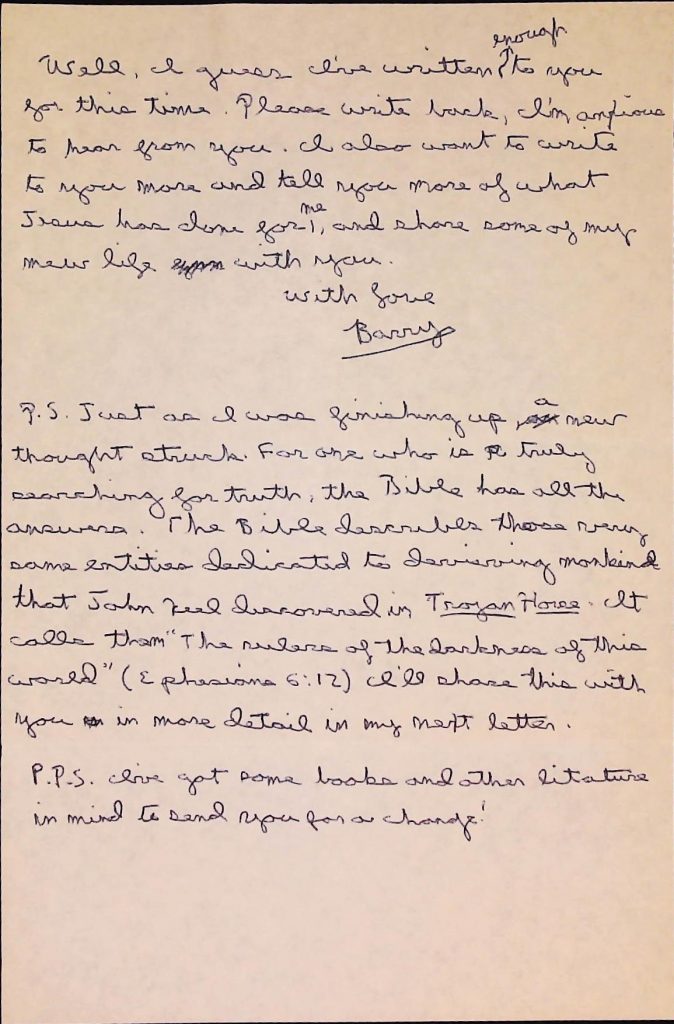 Well, I guess I've written enough to you
for this time. Please write back, I'm anxious
to hear from you. I also want to write
to you more and tell you more of what
Jesus has done for me, and share some of my
new life with you.
With Love
Barry
P.S. Just as I was finishing up, a new
thought struck. For one who is truly
searching for truth, the Bible has all the
answers. The Bible describes those very
same entities dedicated to decieving mankind
that John Keel discovered in Trojan Horse. It
calls them "The rulers of the darkness of this
world" (Ephesians 6:12) I'll share this with
you in more detail in my next letter.
P.P.S. I've got some books and other litature
in mind to send you for a change!